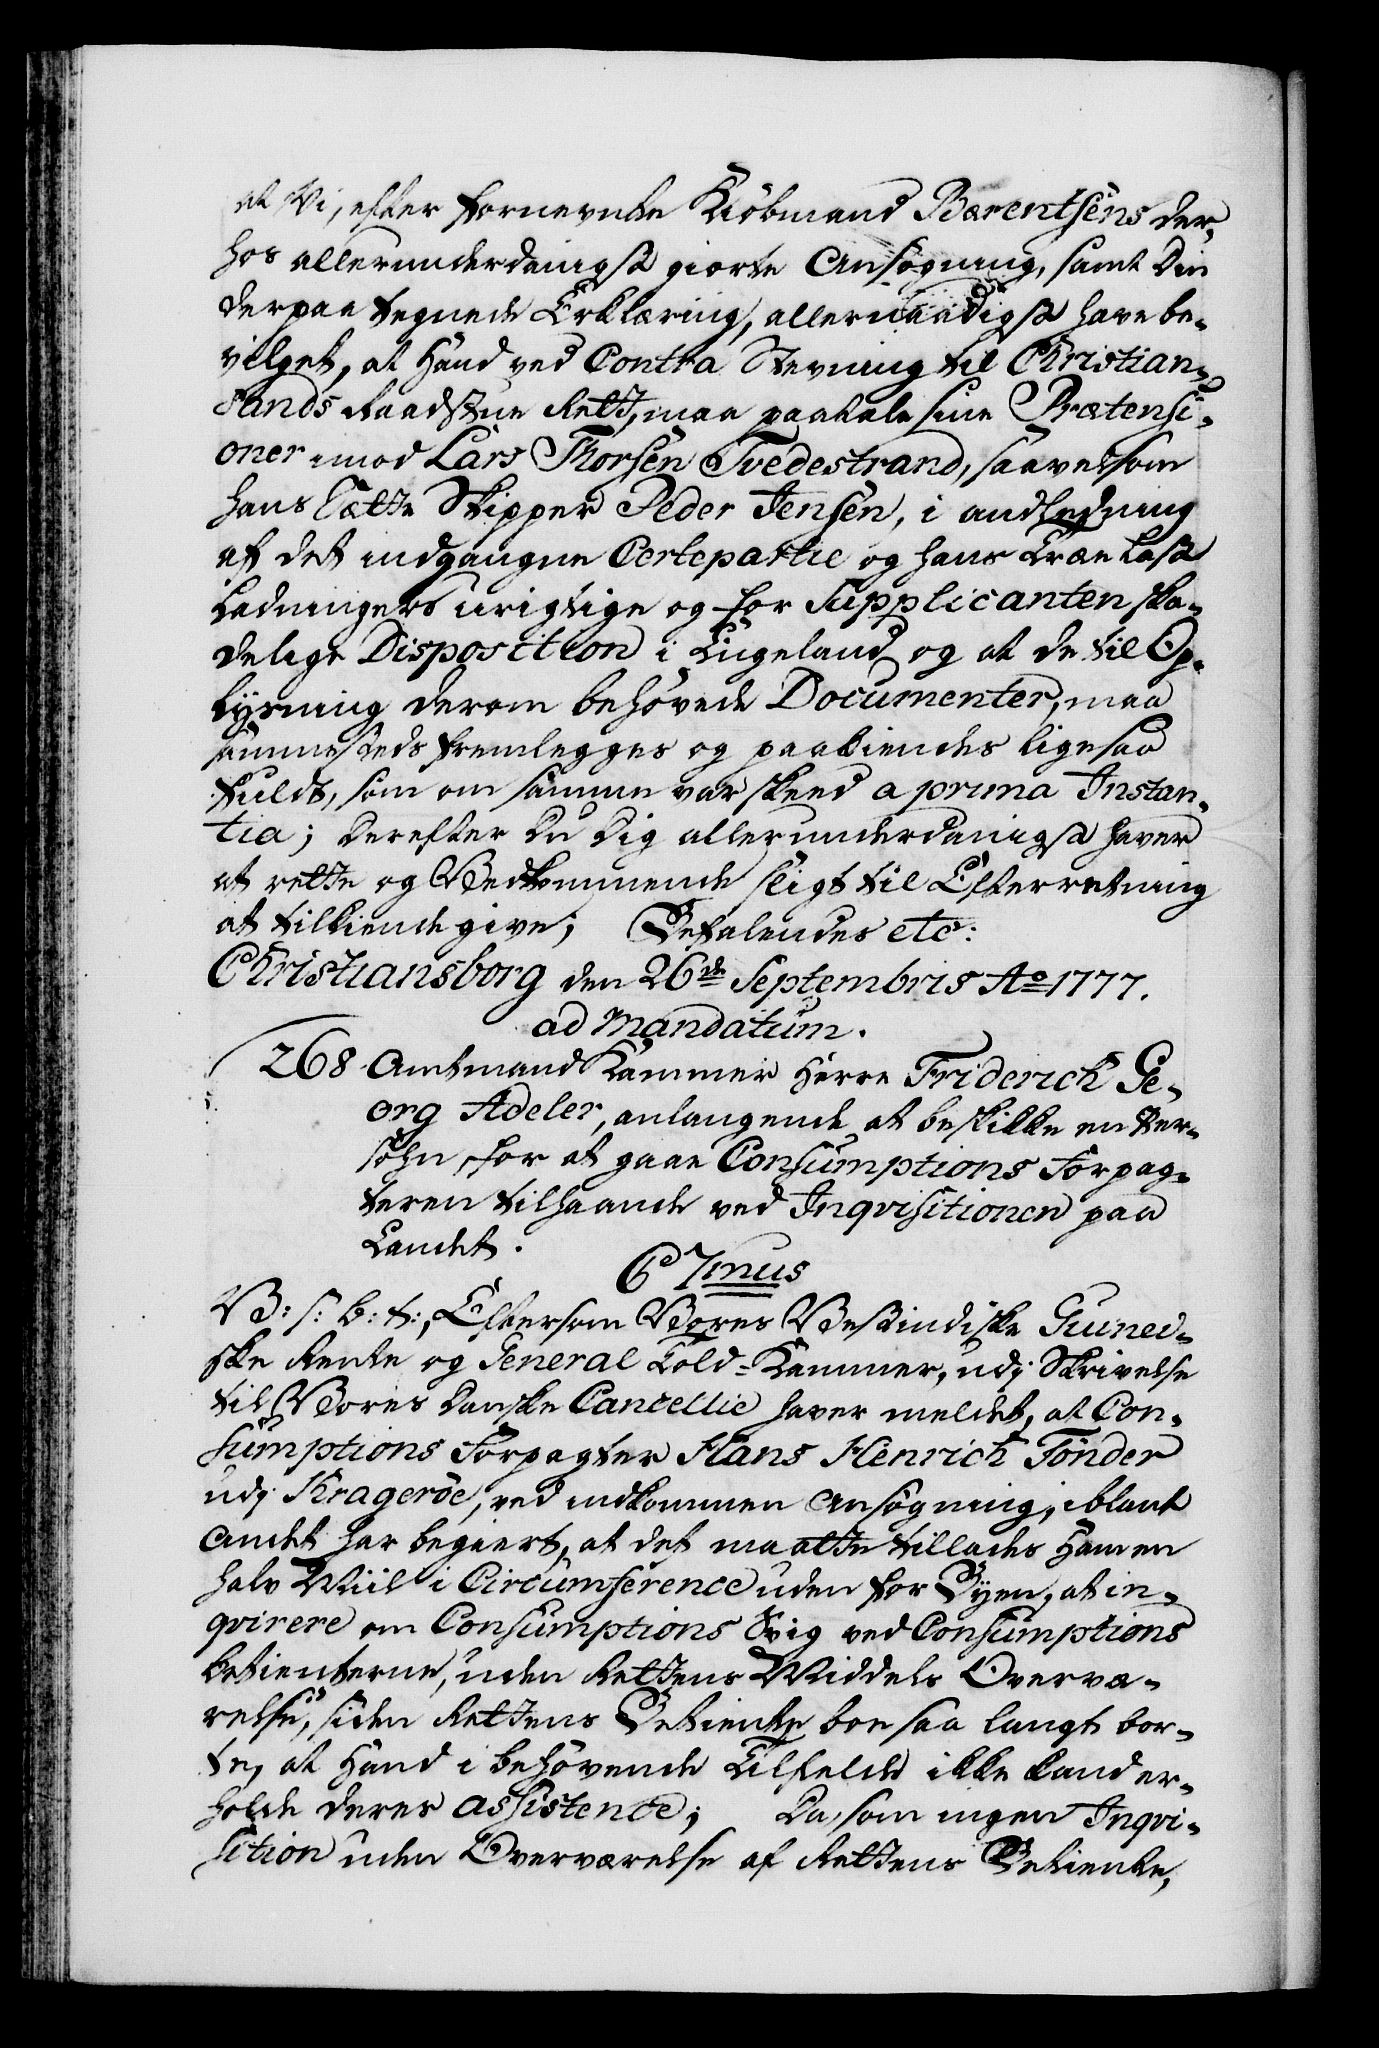 at Vi, efter fornevnte Kiöbmand Bærentsens der,
hos allerunderdanigst giorte Ansøgning, samt Din
derpaa tegnede Erklæring, allernaadigst have be-
vilget, at Hand ved Contra Stevning til Christian-
sands Raadstue Rett, maa paatale sine Prætensi-
oner imod Lars Thorsen Tvedestrand, saavelsom
hans satte Skipper Peder Jensen, i andledning
af det indgangne Certepartie og hans Træe Last
Ladningers urigtige og for Supplicanten ska-
delige Disposition i Engeland og at de til Op-
lysning derom behøvede Documenter, maa
sammesteds fremlegges og paakiendes ligesaa
fuldt, som om samme var skeed a prima Instan-
tia; derefter du dig allerunderdanigst haver
at rette og Vedkommende sligt til Efterretning
at tilkiende give; Befalendes etc:
Christiansborg den 26de Septembris Ao 1777.
ad Mandatum.
268 Amtmand Kammer Herre Friderich Ge-
org Adeler, anlangende at beskikke en Per-
sohn, for at gaae Consumptions Forpag-
teren tilhaande ved Inqvisitionen paa
Landet.
C 7mus
V: s: b: t:, Eftersom Vores Vestindiske Guinei-
ske Rente og General Told-Kammer, udj Skrivelse
til Vores danske Cancellie haver meldet, at Con-
sumptions Forpagter Hans Henrich Tønder
udj Krageröe, ved indkommen Ansøgning, iblant
andet har begiert, at det maatte tillades Ham en
halv Miil i Circumference uden for Byen, at in-
qvirere om Consumptions Svig ved Consumptions
betienterne, uden Rettens Middels Overvæ-
relse, siden Rettens Betiente boe saa langt bor-
te, at Hand i behøvende Tilfelde ikke kand er-
holde deres assistence; Da, som ingen Inqvi-
sition uden Overværelse af Rettens Betiente,